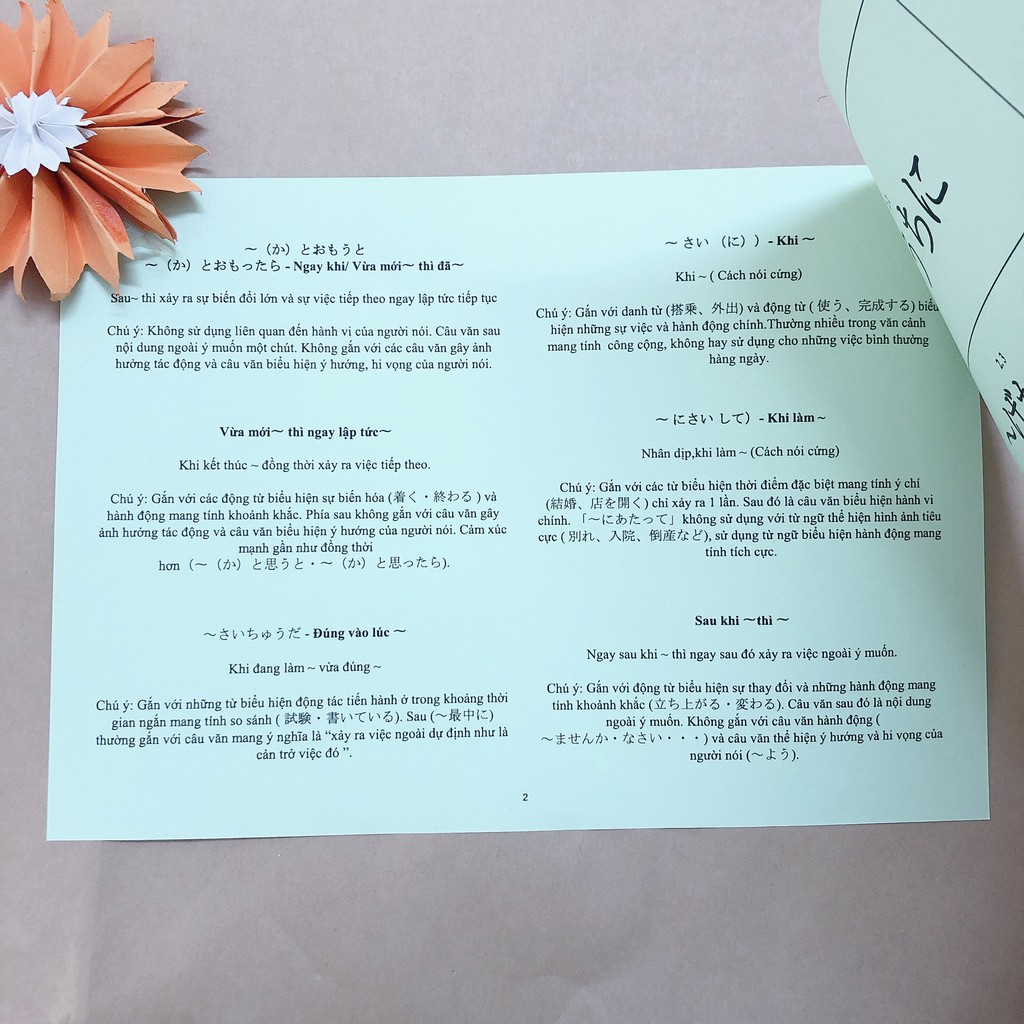 ～（か）とおもうと
～（か）とおもったら - Ngay khi/ Vừa mới～ thì đã～
Sau~ thì xảy ra sự biến đổi lớn và sự việc tiếp theo ngay lập tức tiếp tục
Chú ý: Không sử dụng liên quan đến hành vi của người nói. Câu văn sau
nội dung ngoài ý muốn một chút. Không gắn với các câu văn gây ảnh
hưởng tác động và câu văn biểu hiện ý hướng, hi vọng của người nói.
Vừa mới～ thì ngay lập tức～
Khi kết thúc ~ đồng thời xảy ra việc tiếp theo.
Chú ý: Gắn với các động từ biểu hiện sự biến hóa (着く・終わる ) và
hành động mang tính khoảnh khắc. Phía sau không gắn với câu văn gây
ảnh hưởng tác động và câu văn biểu hiện ý hướng của người nói. Cảm xúc
mạnh gần như đồng thời
hơn（～（か）と思うと・～（か）と思ったら).
～さいちゅうだ - Đúng vào lúc ～
Khi đang làm ~ vừa đúng ~
Chú ý: Gắn với những từ biểu hiện động tác tiến hành ở trong khoảng thời
gian ngắn mang tính so sánh ( 試験・書いている). Sau (～最中に)
thường gắn với câu văn mang ý nghĩa là “xảy ra việc ngoài dự định như là
cản trở việc đó ”.
～ さい （に）） - Khi ～
Khi ~ ( Cách nói cứng)
Chú ý: Gắn với danh từ (搭乗、外出) và động từ ( 使う、完成する) biểu
hiện những sự việc và hành động chính.Thường nhiều trong văn cảnh
mang tính công cộng, không hay sử dụng cho những việc bình thường
hàng ngày.
～ にさい して） - Khi làm ~
Nhân dịp,khi làm ~ (Cách nói cứng)
Chú ý: Gắn với các từ biểu hiện thời điểm đặc biệt mang tính ý chí
(結婚、店を開く) chỉ xảy ra 1 lần. Sau đó là câu văn biểu hiện hành vi
chính. 「～にあたって」không sử dụng với từ ngữ thể hiện hình ảnh tiêu
cực ( 別れ、入院、倒産など), sử dụng từ ngữ biểu hiện hành động mang
tính tích cực.
Sau khi ～thì ～
Ngay sau khi ~ thì ngay sau đó xảy ra việc ngoài ý muốn.
Chú ý: Gắn với động từ biểu hiện sự thay đổi và những hành động mang
tính khoảnh khắc (立ち上がる・変わる). Câu văn sau đó là nội dung
ngoài ý muốn. Không gắn với câu văn hành động (
～ませんか・なさい・・・) và câu văn thể hiện ý hướng và hi vọng của
người nói (～よう).
2
ちに
23